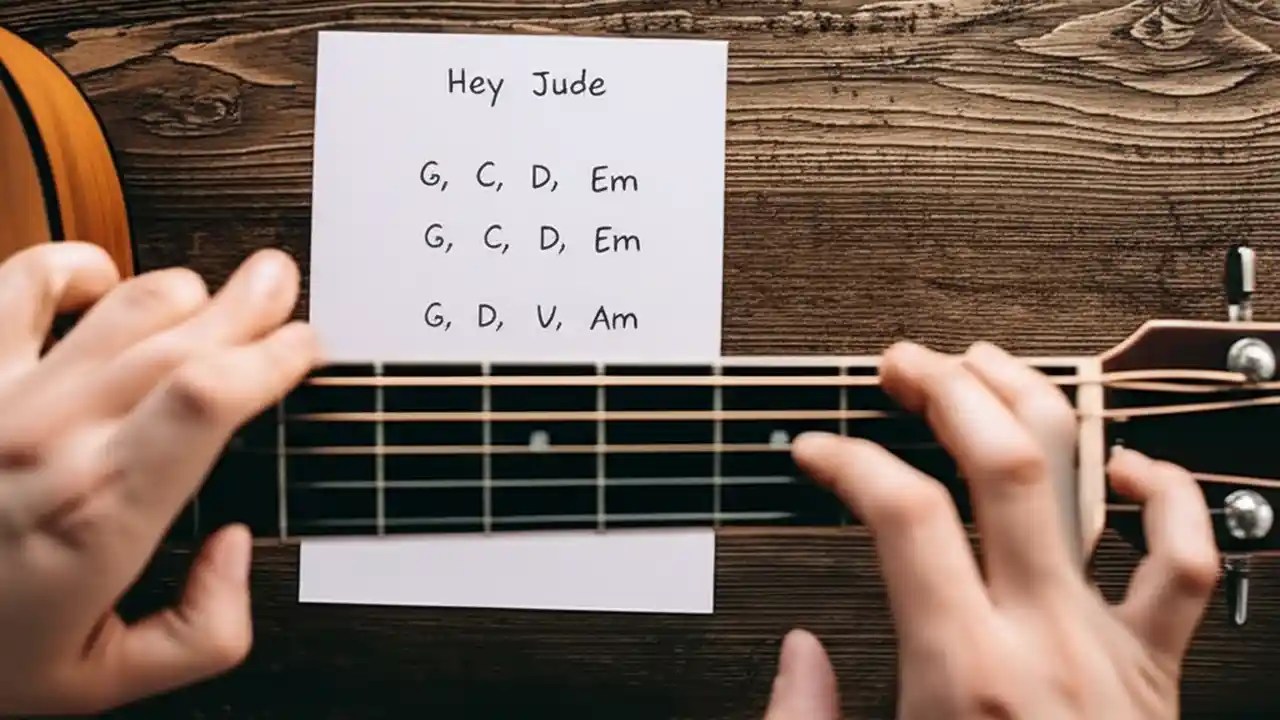 Hey Jude
G, C, D, Em
G, C, D, Em
G, D, V, Am